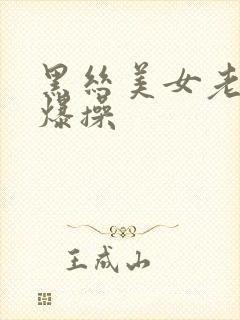 黑丝美女老
爆操
王成山